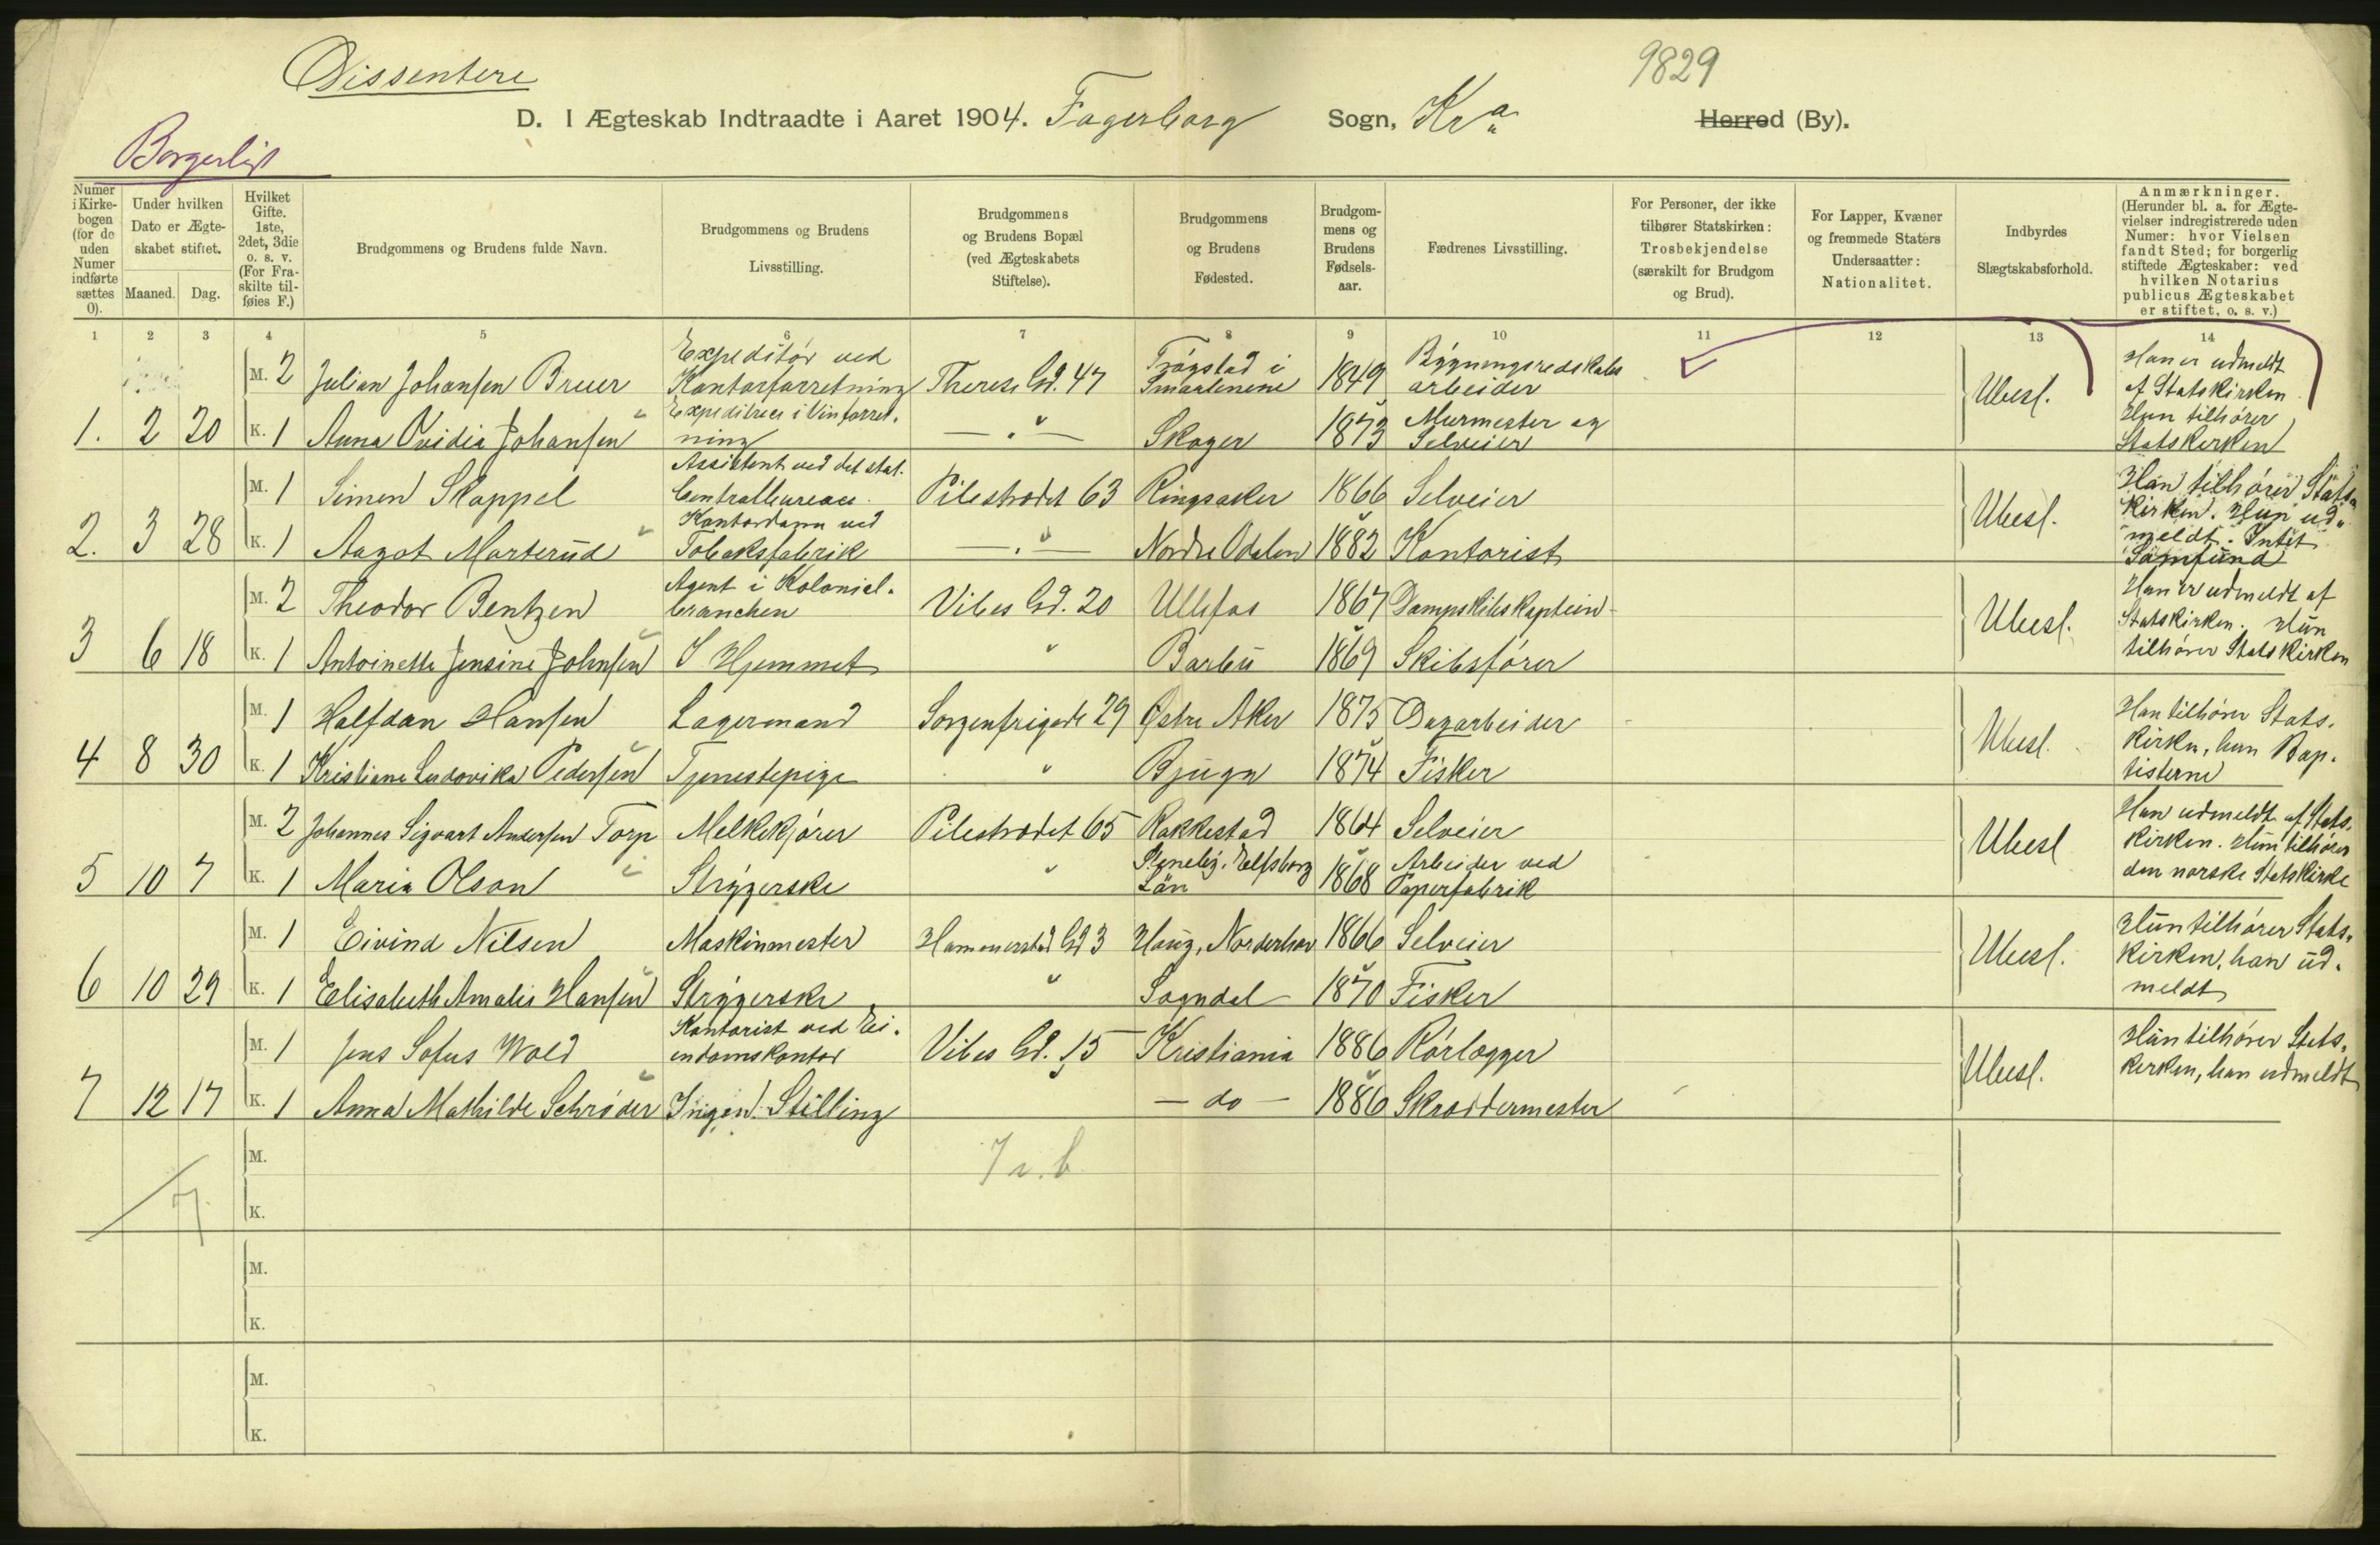 Dissentere
9829
D. I Ægteskab Indtraadte i Aaret 1904. Fagerborg Sogn, Kra Herred (By).
Borgerligt
Numer i Kirkebogen (for de uden Numer indførte sættes 0).
Under hvilken Dato er Ægteskabet stiftet.
Maaned. Dag.
Hvilket Gifte. 1ste, 2det, 3die o. s. v. (For Fraskilte tilføies F.)
Brudgommens og Brudens fulde Navn.
Brudgommens og Brudens Livsstilling.
Brudgommens og Brudens Bopæl (ved Ægteskabets Stiftelse).
Brudgommens og Brudens Fødested.
Brudgommens og Brudens Fødselsaar.
Fædrenes Livsstilling.
For Personer, der ikke tilhører Statskirken: Trosbekjendelse (særskilt for Brudgom og Brud).
For Lapper, Kvæner og fremmede Staters Undersaatter: Nationalitet.
Indbyrdes Slægtskabsforhold.
Anmærkninger. (Herunder bl. a. for Ægtevielser indregistrerede uden Numer: hvor Vielsen fandt Sted; for borgerlig stiftede Ægteskaber: ved hvilken Notarius publicus Ægteskabet er stiftet, o. s. v.)
1 2 3 4 5 6 7 8 9 10 11 12 13 14
M. 2 Julian Johansen Bruer Expeditør ved Kontorforretning Therese Gd. 47 Trøgstad i Smaalenene 1849 Bygningsredskabsarbeider Ubesl. Han er udmeldt af Statskirken
1. 2 20 K. 1 Anna Ovidia Johansen Expeditrice i Vinforretning — " — Skoger 1873 Murmester og Selveier Hun tilhører Statskirken
M. 1 Simen Skappel Assistent ved det stat. Centralbureau. Pilestrædet 63 Ringsaker 1866 Selveier Ubesl. Han tilhører Statskirken. Hun udmeldt. Intet Samfund
2. 3 28 K. 1 Aagot Marterud Kontordame ved Tobaksfabrik — " — Nordre Odalen 1882 Kontorist
M. 2 Theodor Bentzen Agent i Kolonialbranchen Vibes Gd. 20 Ulefos 1867 Dampskibskaptein Ubesl. Han er udmeldt af Statskirken. Hun tilhører Statskirken
3 6 18 K. 1 Antoinette Jensine Johnsen I Hjemmet " Barbu 1869 Skibsfører
M. 1 Halfdan Hansen Lagermand Sorgenfrigade 29 Østre Aker 1875 Dagarbeider Ubesl. Han tilhører Statskirken, hun Baptisterne
4 8 30 K. 1 Kristiane Ludovika Pedersen Tjenestepige " Bjugn 1874 Fisker
M. 2 Johannes Sigvart Andersen Torp Melkekjører Pilestrædet 65 Rakkestad 1864 Selveier Ubesl Han udmeldt af Statskirken. Hun tilhører den norske Statskirke
5 10 7 K. 1 Maria Olson Strygerske " Steneby, Elfsborg Län 1868 Arbeider ved Papirfabrik
M. 1 Eivind Nilsen Maskinmester Hammerstad Gd 3 Haug, Norderhov 1866 Selveier Ubesl. Hun tilhører Statskirken, han udmeldt
6 10 29 K. 1 Elisabeth Amalie Hansen Strygerske " Sogndal 1870 Fisker
M. 1 Jens Sofus Wold Kontorist ved Eiendomskontor Vibes Gd. 15 Kristiania 1886 Rørlægger Ubesl. Hun tilhører Statskirken, han udmeldt
7 12 17 K. 1 Anna Mathilde Schrøder Ingen Stilling — do — 1886 Skræddermester
M.
K.
7
M.
K.
M.
K.